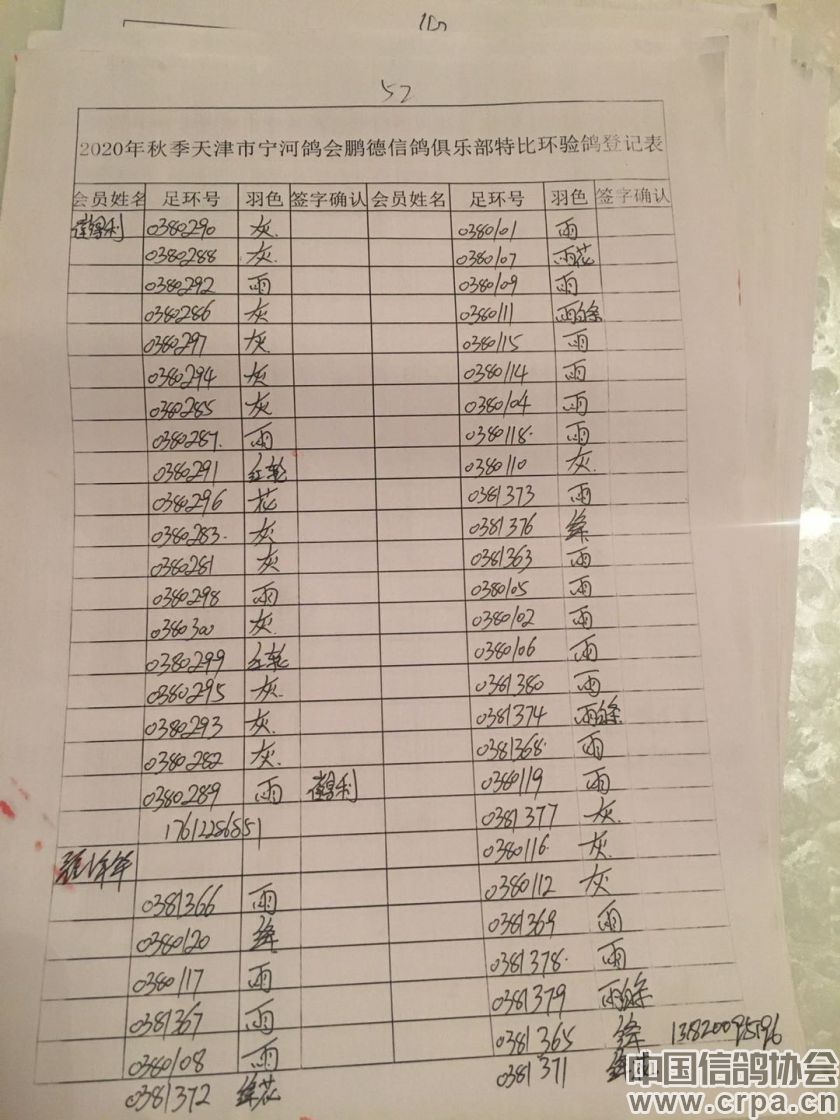 52
2020年秋季天津市宁河鸽会鹏德信鸽俱乐部特比环验鸽登记表
会员姓名 足环号 羽色 签字确认 会员姓名 足环号 羽色 签字确认
0380290 灰 0380101 雨
0380288 灰 0380107 雨花
0380292 雨 0380109 雨
0380286 灰 0380111 雨白条
0380297 灰 0380115 雨
0380294 灰 0380114 雨
0380285 灰 0380104 雨
0380287 雨 0380118 雨
0380291 红轮 0380110 灰
0380296 花 0381373 雨
0380283 灰 0381376 绛
0380281 灰 0381363 雨
0380298 雨 0380105 雨
0380300 灰 0380102 雨
0380299 红轮 0380106 雨
0380295 灰 0381380 雨
0380293 灰 0381374 雨白条
0380282 灰 0381368 雨
0380289 雨 0380119 雨
17612286851 0381377 灰
0380116 灰
0381366 雨 0380112 灰
0380120 绛 0381369 雨
0380117 雨 0381378 雨
0381367 雨 0381379 雨白条
0380108 雨 0381365 绛 13820095596
0381372 绛花 0381371
中国信鸽协会
www.crpa.cn